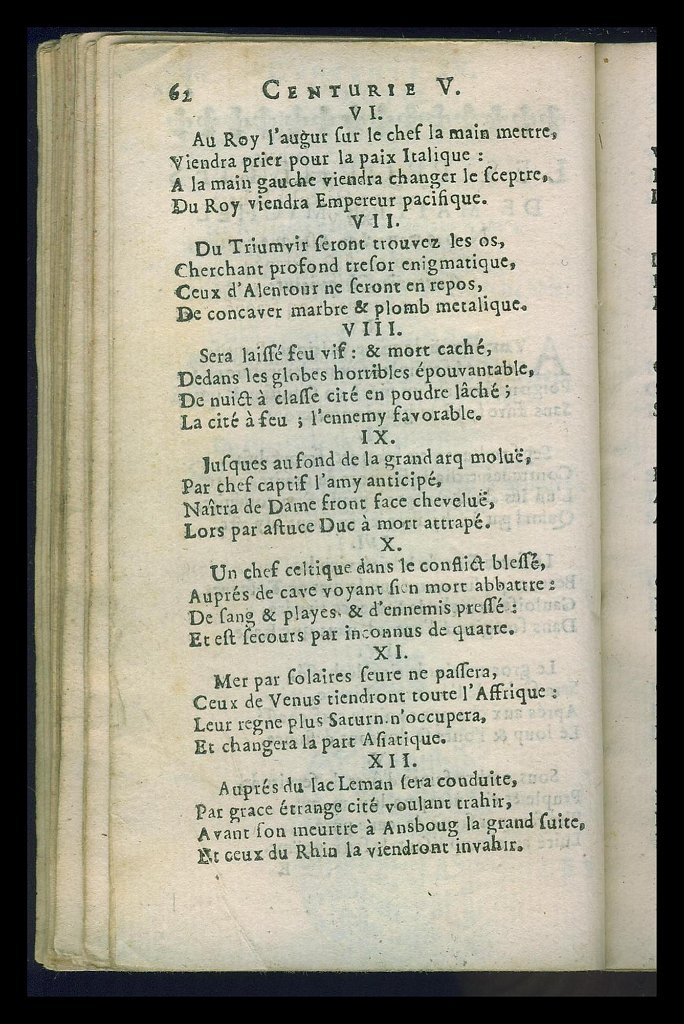 62 CENTURIE V.
VI.
Au Roy l'augur ſur le chef la main mettre,
Viendra prier pour la paix Italique :
A la main gauche viendra changer le ſceptre,
Du Roy viendra Empereur pacifique.
VII.
Du Triumvir ſeront trouvez les os,
Cherchant profond treſor enigmatique,
Ceux d'Alentour ne ſeront en repos,
De concaver marbre & plomb metalique.
VIII.
Sera laiſſé feu vif : & mort caché,
Dedans les globes horribles épouvantable,
De nuict à claſſe cité en poudre lâché ;
La cité à feu ; l'ennemy favorable.
IX.
Juſques au fond de la grand arq moluë,
Par chef captif l'amy anticipé,
Naîtra de Dame front face cheveluë,
Lors par aſtuce Duc à mort attrapé.
X.
Un chef celtique dans le conflict bleſſé,
Auprés de cave voyant ſien mort abbattre :
De ſang & playes, & d'ennemis preſſé :
Et eſt ſecours par inconnus de quatre.
XI.
Mer par ſolaires ſeure ne paſſera,
Ceux de Venus tiendront toute l'Affrique :
Leur regne plus Saturn n'occupera,
Et changera la part Aſiatique.
XII.
Auprés du lac Leman ſera conduite,
Par grace étrange cité voulant trahir,
Avant ſon meurtre à Ansboug la grand ſuite,
Et ceux du Rhin la viendront invahir.